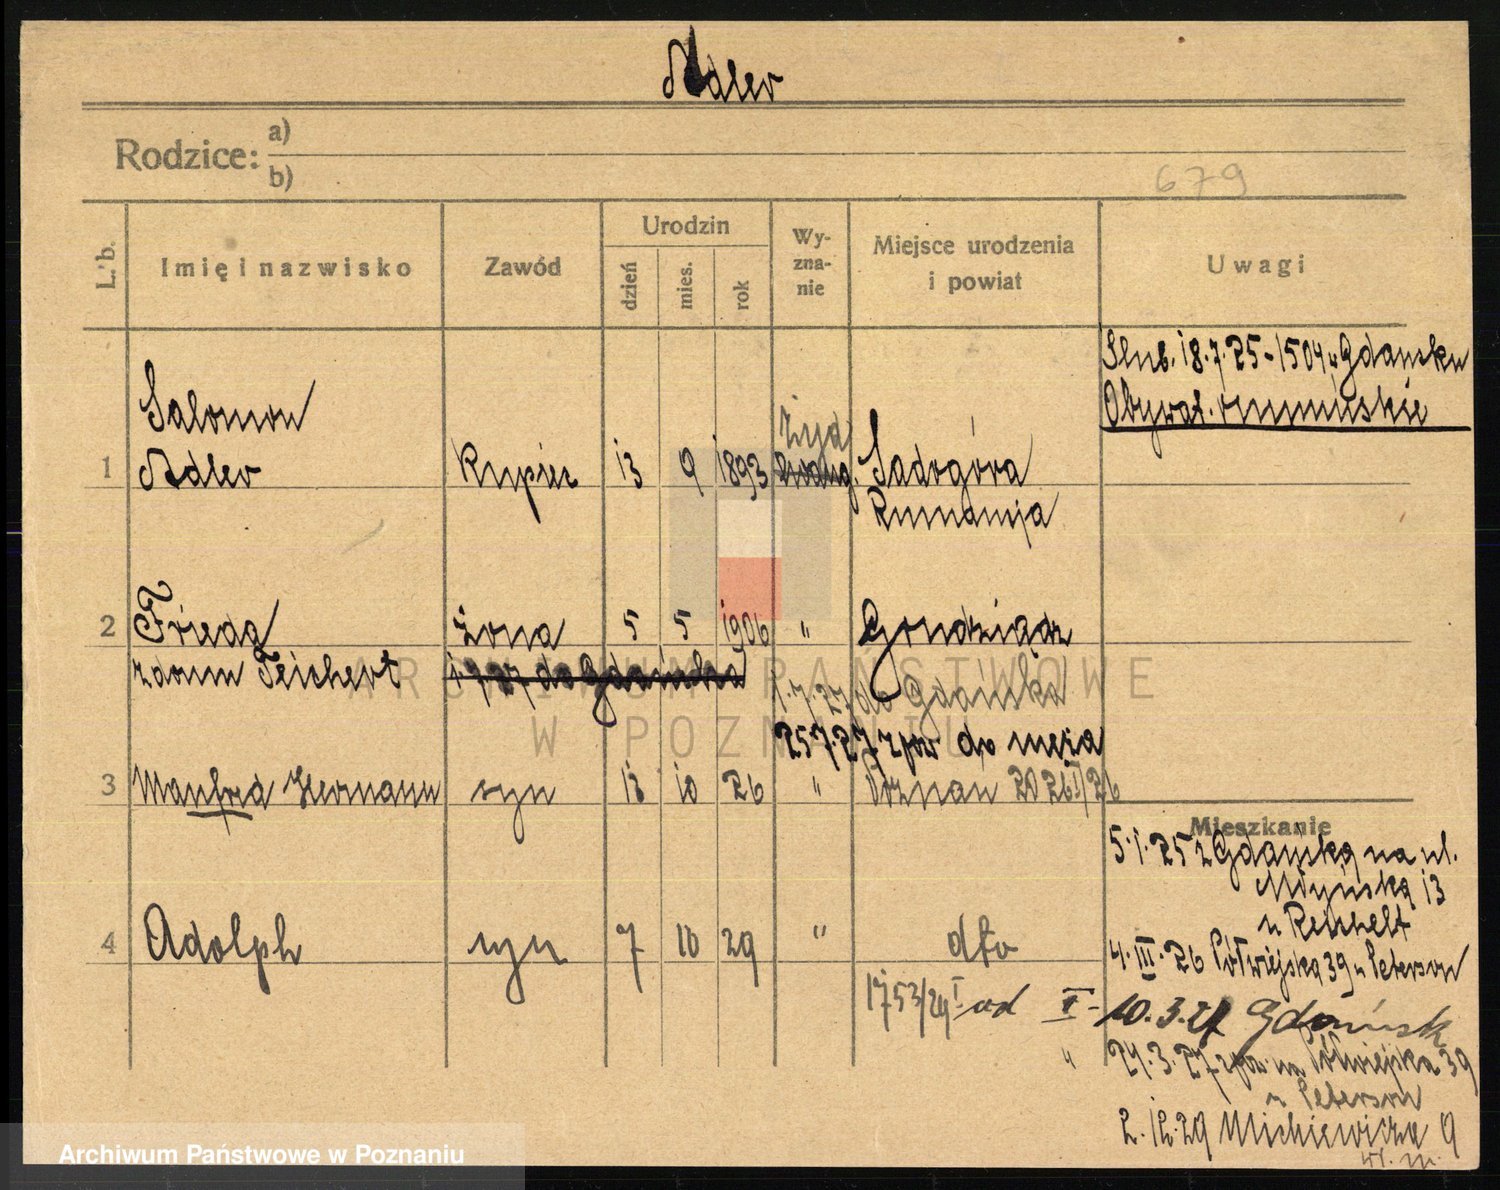 Adler
Rodzice: a)
b)
679
L. b.
Imię i nazwisko
Zawód
Urodzin
dzień
mies.
rok
Wy-
zna-
nie
Miejsce urodzenia
i powiat
Uwagi
Ślub. 18.7.25 - 1504 w Gdańsku
Obywat. rumuńskie
Salomon
żyd
1 Adler Kupiec 13 9 1893 Sadogóra
Rumunja
2 Frieda żona 5 5 1906 " Grudziądz
zdom Teichert 1 7 27 do Gdańska
1.7.27 do Gdańska
25.7.27 zpow do męża
3 Manfred Hermann syn 13 10 26 " Poznań
Mieszkanie
5.1.25 z Gdańska na ul.
13
u Reichelt
4 Adolph syn 7 10 29 " dto
4.III.26 Półwiejska 39 u Peterson
1753/29 I od I - 10.3.27 Gdańsk
" 24.3.27 zpow na Półwiejska 39
u Peterson
2.12.29 Mickiewicza 9
ARCHIWUM PAŃSTWOWE
W POZNANIU
Archiwum Państwowe w Poznaniu